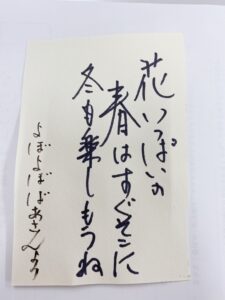 花いっぱいの
春はすぐそこに
冬も楽しもうね
よぼよぼばあさんより